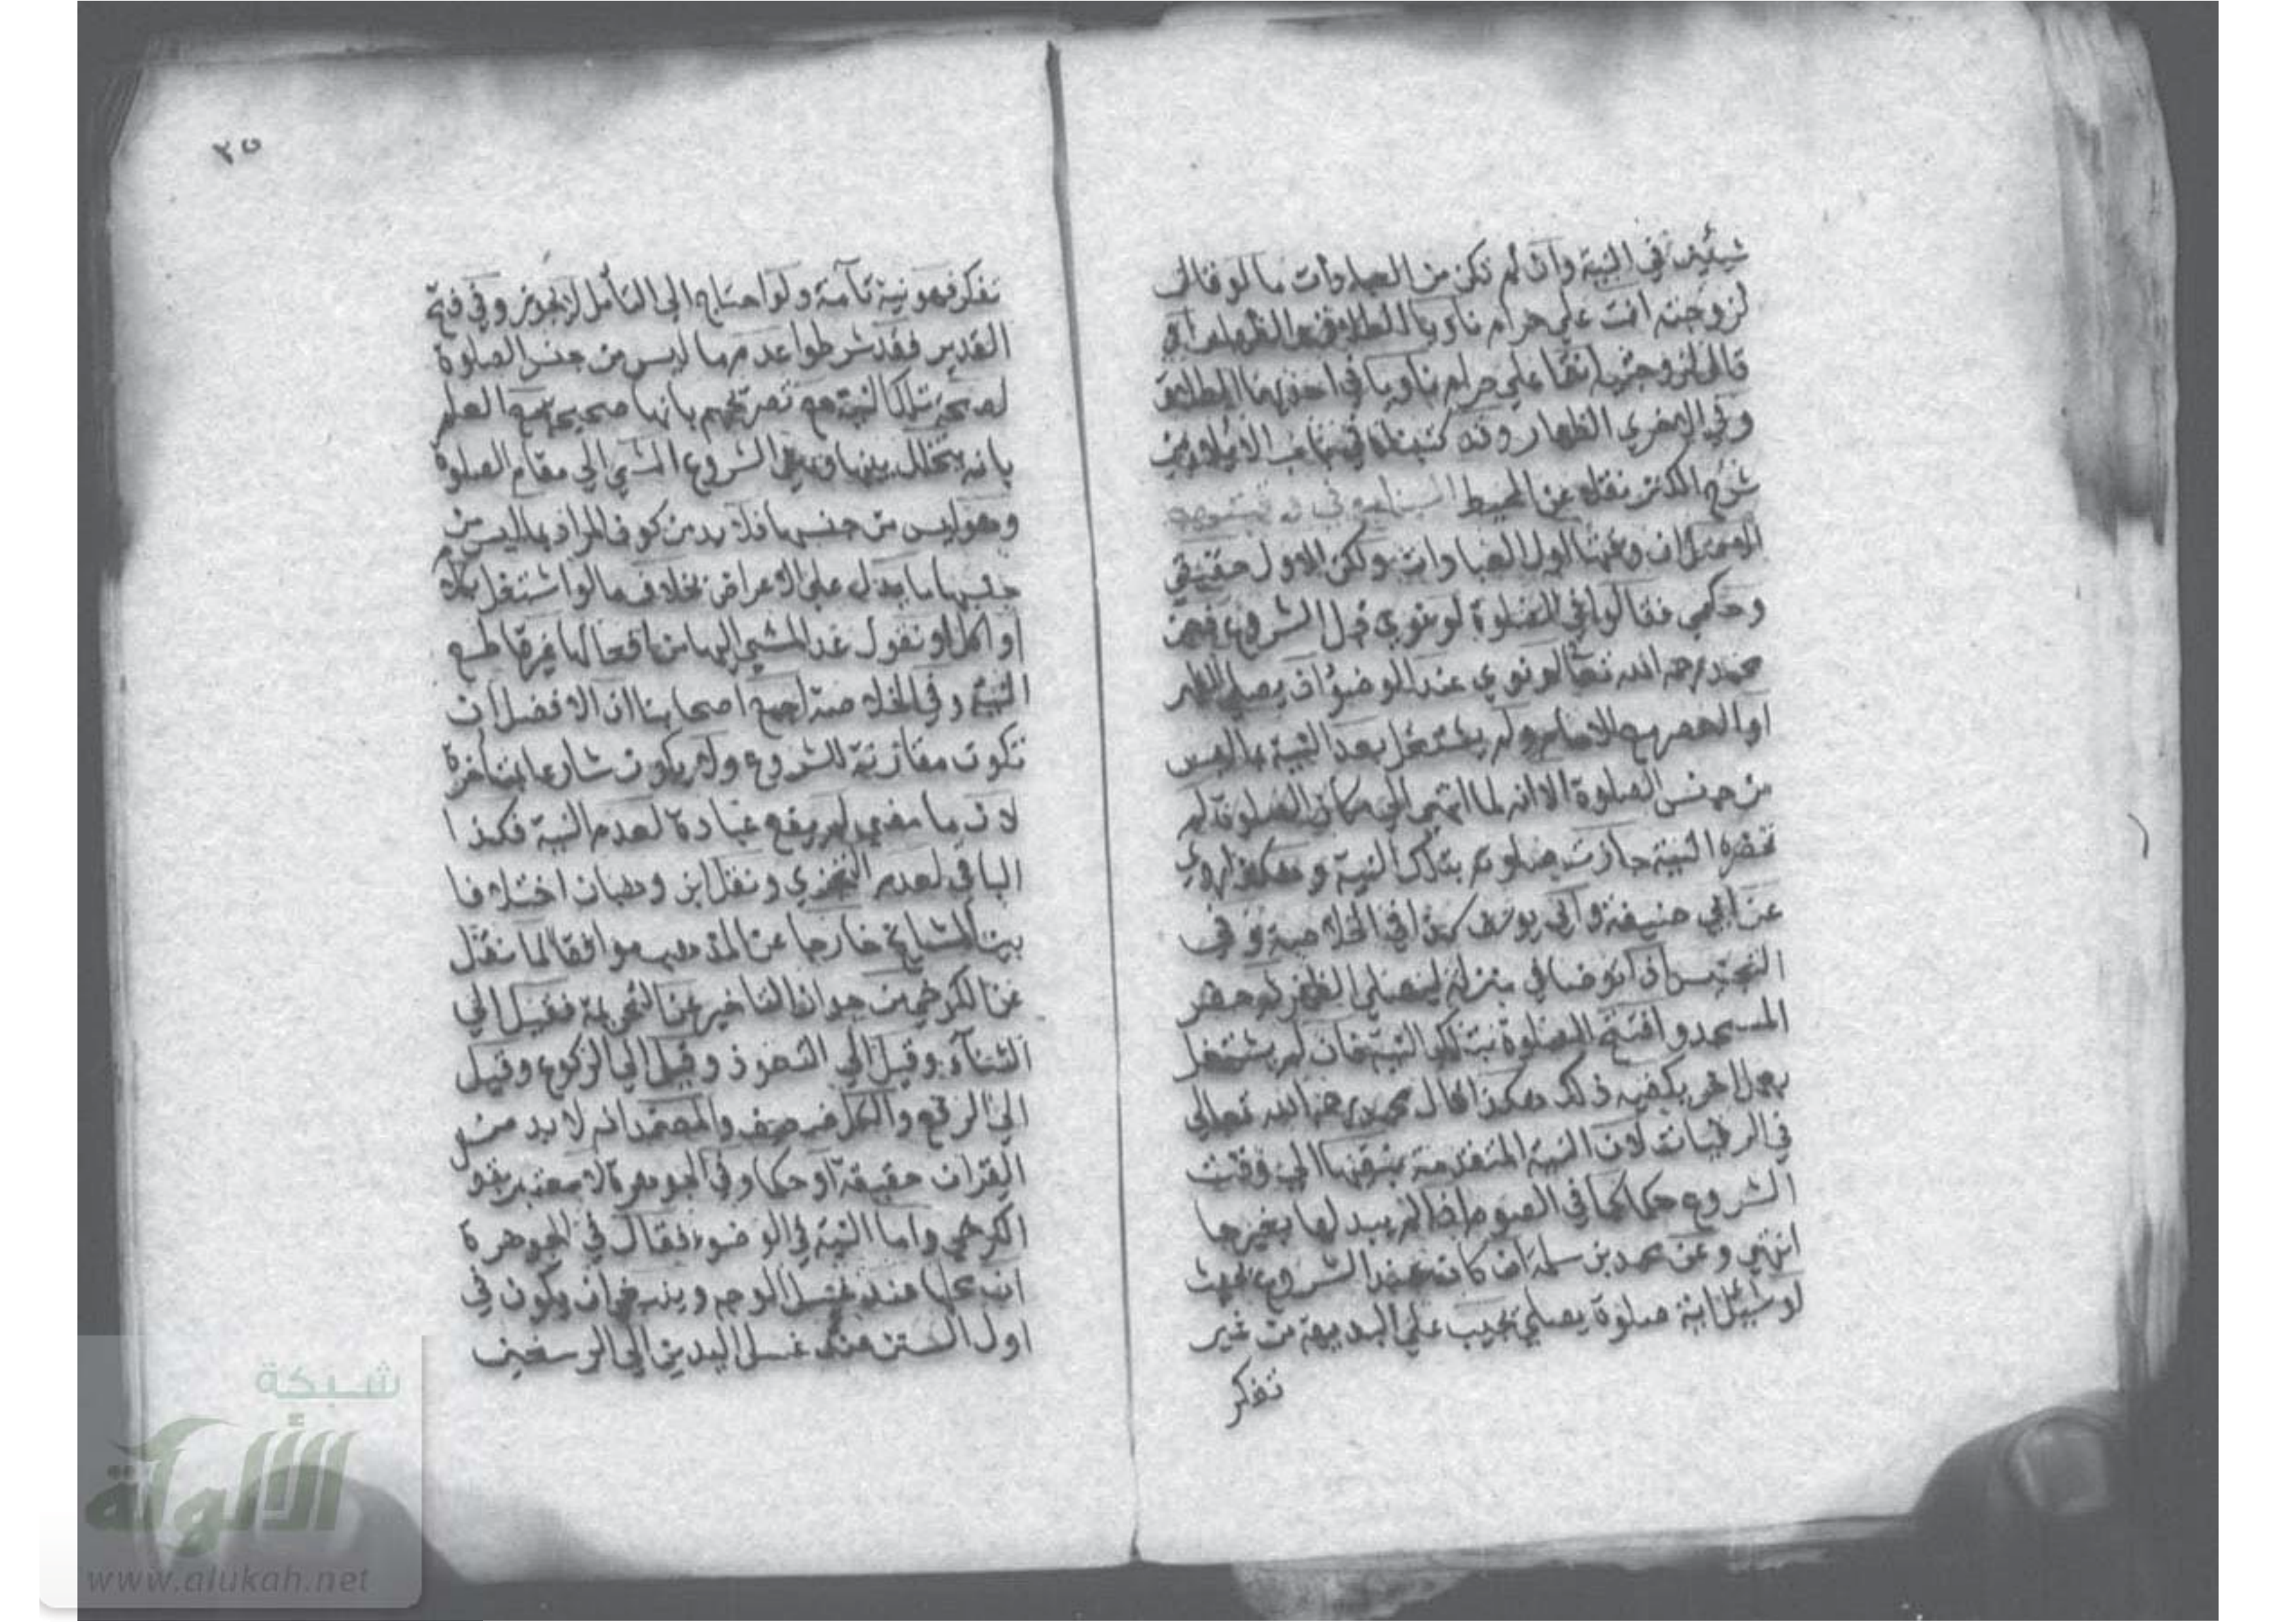 شيئين في النية وان لم تكن من العبادات ما لو قال
لزوجته انت علي حرام ناويا الطلاق والظهار او
قال لزوجتيه انتما علي حرام ناويا في احديهما الطلاق
وفي الاخري الظهار وقد كتبناه في باب الايلاء من
شرح الكنز نقلا عن المحيط السابع في وقتها
الاصل ان وقتها اول العبادات ولكن الاول حقيقي
وحكمي فقالوا في الصلوة لو نوي قبل الشروع فعن
محمد رحمه الله تعا لو نوي عند الوضوء ان يصلي الظهر
او العصر مع الامام ولم يشتغل بعد النية بما ليس
من جنس الصلوة الا انه لما انتهي الي مكان الصلوة لم
تحضره النية جازت صلوته بتلك النية وهكذا روي
عن ابي حنيفة وابي يوسف كذا في الخلاصة وفي
التجنيس اذا توضا في منزله ليصلي الظهر ثم حضر
المسجد وافتتح الصلوة بتلك النية فان لم يشتغل
بعمل اخر يكفيه ذلك هكذا قال محمد رحمه الله تعالي
في الرقيات لان النية المتقدمة يبقيها الي وقت
الشروع حكما كما في الصوم اذا لم يبدلها بغيرها
انتهي وعن محمد بن سلمة ان كان عند الشروع بحيث
لو سئل اية صلوة يصلي يجيب علي البديهة من غير
تفكر
٢٥
تفكر فهو نية تامة ولو احتاج الي التامل لا تجوز وفي فتح
القدير فقد شرطوا عدم ما ليس من جنس الصلوة
لصحة تلك النية مع تصريحهم بانها صحيحة مع العلم
بانه يتخلل بينها وبين الشروع المشي الي مقام الصلوة
وهو ليس من جنسها فلا بد من كون المراد بما ليس من
جنسها ما يدل علي الاعراض بخلاف ما لو اشتغل بكلام
او اكل او نقول عد المشي اليها من افعالها غير قاطع
النية وفي الخلاصة اجمع اصحابنا ان الافضل ان
تكون مقارنة للشروع ولا يكون شارعا بمتاخرة
لان ما مضي لم يقع عبادة لعدم النية فكذا
الباقي لعدم التجزي ونقل ابن وهبان اختلافا
بين المشايخ خارجا عن المذهب موافقا لما نقل
عن الكرخي من جواز التاخير عن التحريمة فقيل الي
الثناء وقيل الي التعوذ وقيل الي الركوع وقيل
الي الرفع والكل ضعيف والمعتمد انه لا بد من
القران حقيقة او حكما وفي الجوهرة لا معتبر بقول
الكرخي واما النية في الوضوء فقال في الجوهرة
ان محلها عند غسل الوجه وينبغي ان يكون في
اول السنن عند غسل اليدين الي الرسغين
شبكة
الألوكة
www.alukah.net